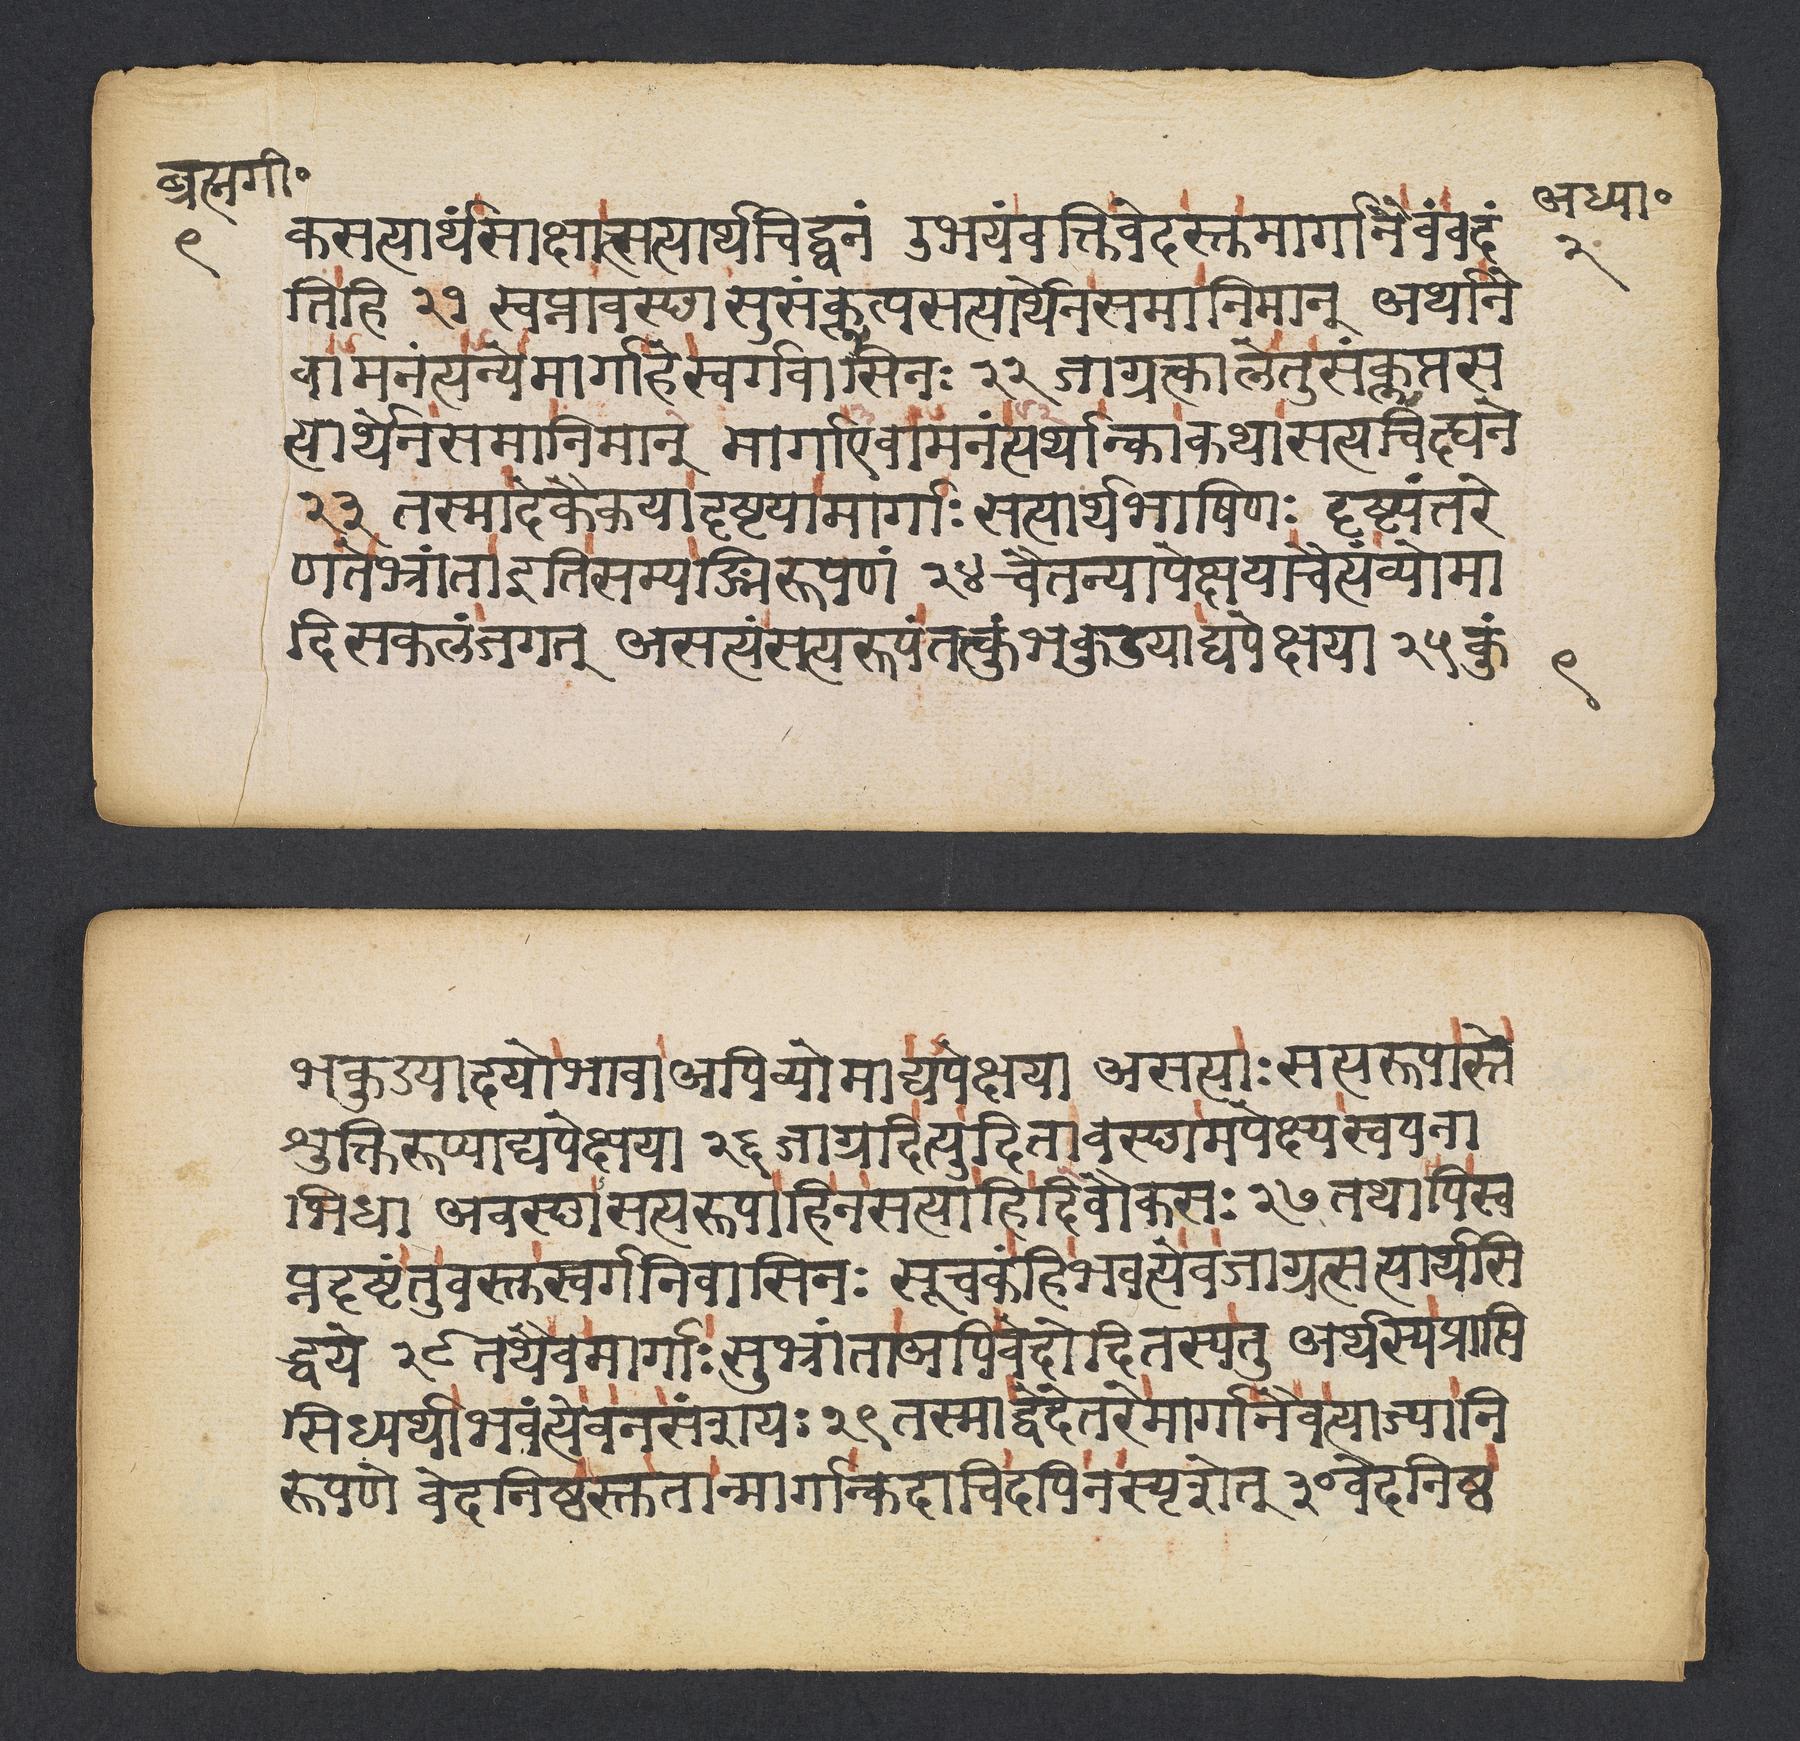 ब्रह्मगी॰
९
अध्या॰
२
कसत्यार्थंसाक्षात्सत्यार्थचिद्घनं उभयंवक्तिवेदस्तुमार्गानैवंवदं
तिहि २१ स्वप्नावस्छासुसंक्लृत्पसत्यार्थेनसमानिमान् अर्थाने
वामनंत्यन्येमार्गाहेस्वर्गवासिनः २२ जाग्रत्कालेतुसंक्लृप्तस
त्यार्थेनसमानिमान् मार्गाएवामनंत्यर्थान्काकथासत्यचिद्घने
२३ तस्मादेकैकयादृष्टयामार्गाः सत्यार्थभाषिणः दृष्ट्यंतरे
णतेभ्रांताइतिसम्यङ्निरूपणं २४ चैतन्यापेक्षयाचेत्यंव्योमा
दिसकलंजगत् असत्यंसत्यरूपंतत्कुंभकुड्याद्यपेक्षया २५ कुं
९
भकुड्यादयोभावाअपिव्योमाद्यपेक्षया असत्याः सत्यरूपास्ते
शुक्तिरूप्याद्यपेक्षया २६ जाग्रदित्युदितावस्छामपेक्ष्यस्वपना
भिधा अवस्छासत्यरूपाहिनसत्याहिदिवौकसः २७ तथापिस्व
प्नदृष्टंतुवस्तुस्वर्गनिवासिनः सूचकंहिभवत्येवजाग्रत्सत्यार्थसि
द्धये २८ तथैवमार्गाः सुभ्रांताअपिवेदोदितस्यतु अर्थस्यप्राप्ति
सिध्यर्थाभवंत्येवनसंशयः २९ तस्माद्वेदेतरेमार्गानैवत्याज्यानि
रूपणे वेदनिष्ठस्तुतान्मार्गान्कदाचिदपिनस्पृशेत् ३० वेदनिष्ठ